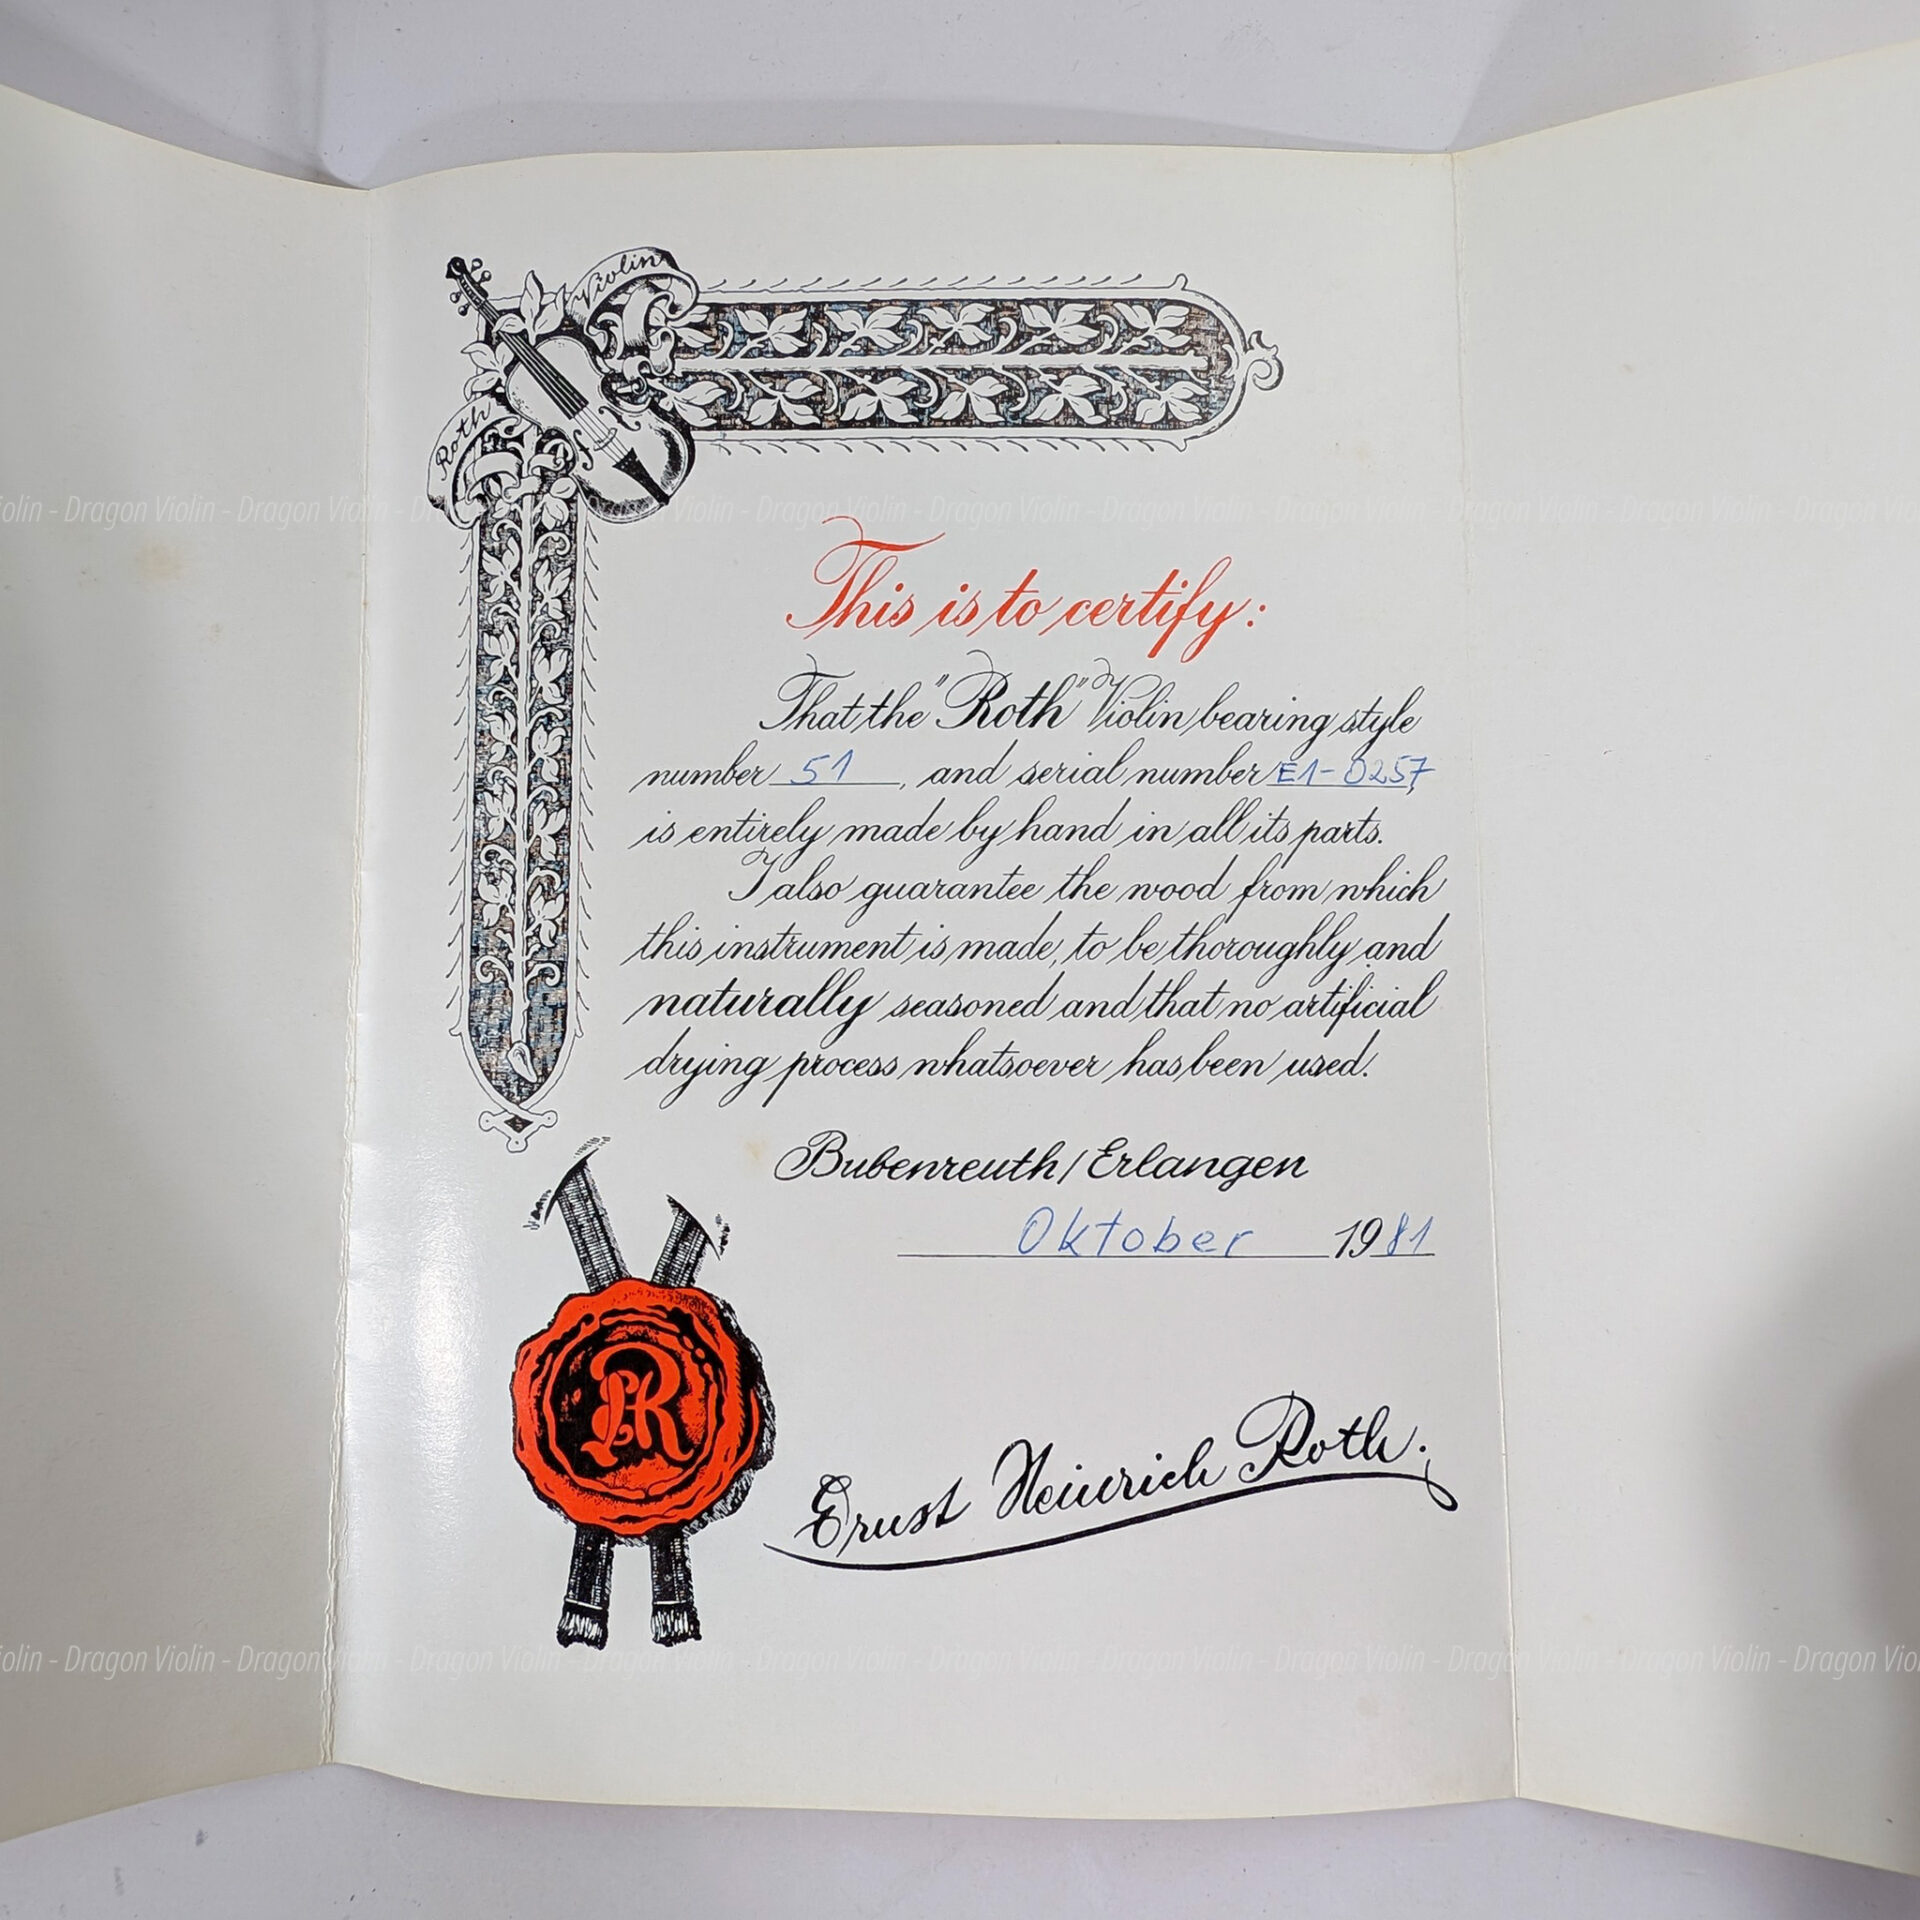 Violin
Roth
olin - Dragon Violin - Dragon Violin - Dragon Violin - Dragon Violin - Dragon Violin - Dragon Violin - Dragon Violin - Dragon Violin - Dragon Violin - Dragon Violin - Dragon Viol
This is to certify:
That the "Roth" Violin bearing style
number 51, and serial number E1-0257,
is entirely made by hand in all its parts.
I also guarantee the wood from which
this instrument is made, to be thoroughly and
naturally seasoned and that no artificial
drying process whatsoever has been used.
Bubenreuth/Erlangen
Oktober 1981
R
ER
Ernst Heinrich Roth.
olin - Dragon Violin - Dragon Violin - Dragon Violin - Dragon Violin - Dragon Violin - Dragon Violin - Dragon Violin - Dragon Violin - Dragon Violin - Dragon Violin - Dragon Viol